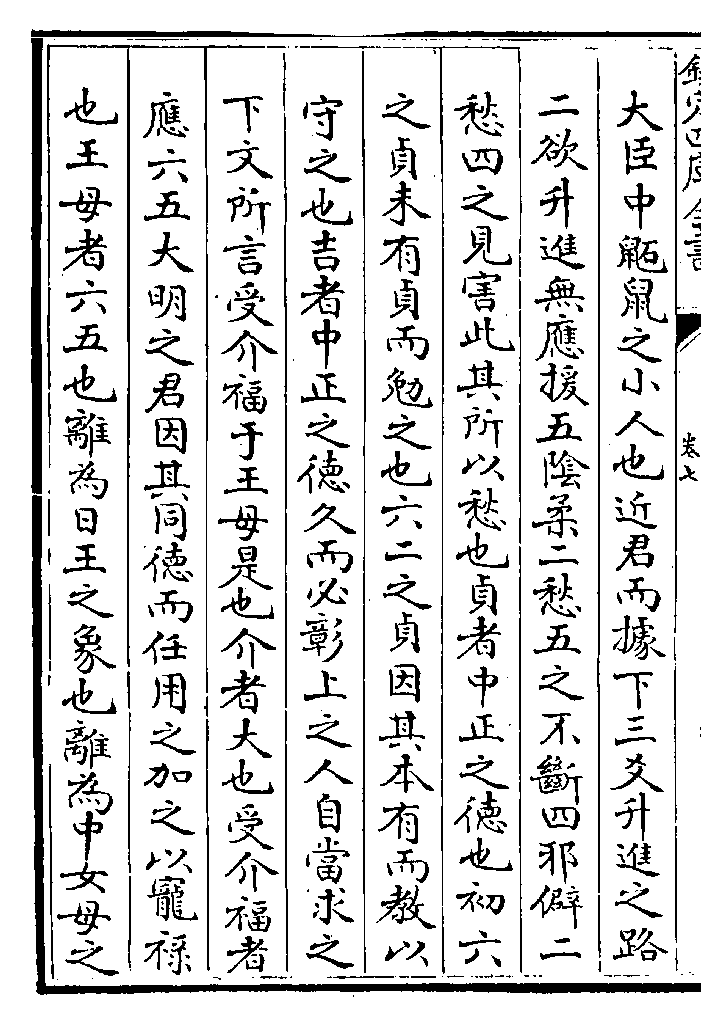 欽定四庫全書
卷七
大臣中鼫鼠之小人也近君而據下三爻升進之路
二欲升進無應援五陰柔二愁五之不斷四邪僻二
愁四之見害此其所以愁也貞者中正之德也初六
之貞未有貞而勉之也六二之貞因其本有而教以
守之也吉者中正之德久而必彰上之人自當求之
下文所言受介福于王母是也介者大也受介福者
應六五大明之君因其同德而任用之加之以寵祿
也王母者六五也離為日王之象也離為中女母之